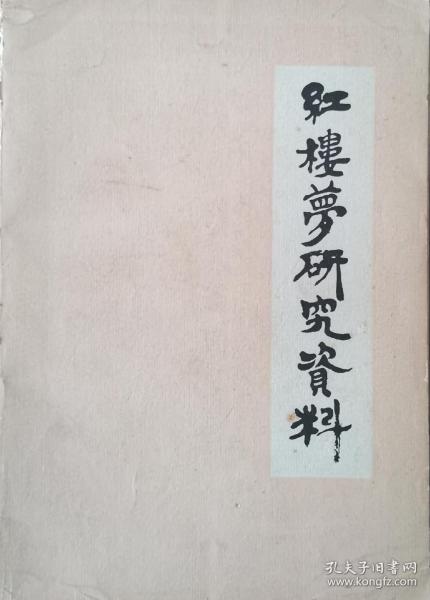 紅樓夢研究資料
孔夫子旧书网
www.kongfz.com